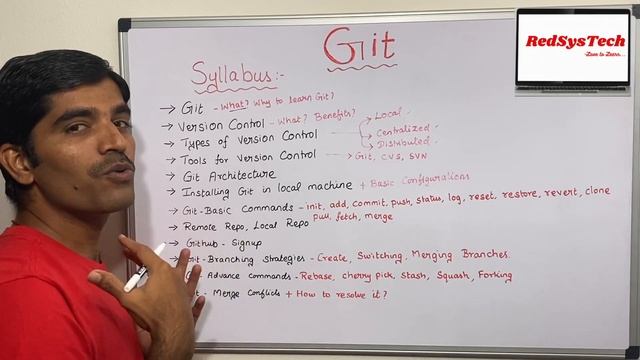 Git
RedSysTech
-Love to Learn...
Syllabus:-
→ Git - What? Why to learn Git?
→ Version Control - What? Benefits?
→ Types of Version Control → Local.
→ Centralized.
→ Distributed.
→ Tools for Version Control → Git, CVS, SVN
→ Git Architecture
→ Installing Git in local machine + Basic Configurations
→ Git-Basic Commands - init, add, commit, push, status, log, reset, restore, revert, clone
pull, fetch, merge
→ Remote Repo, Local Repo
→ Github - Signup
→ Git-Branching strategies - Create, Switching, Merging Branches.
Advance commands - Rebase, cherry pick, Stash, Squash, Forking
- Merge Conflicts + How to resolve it?